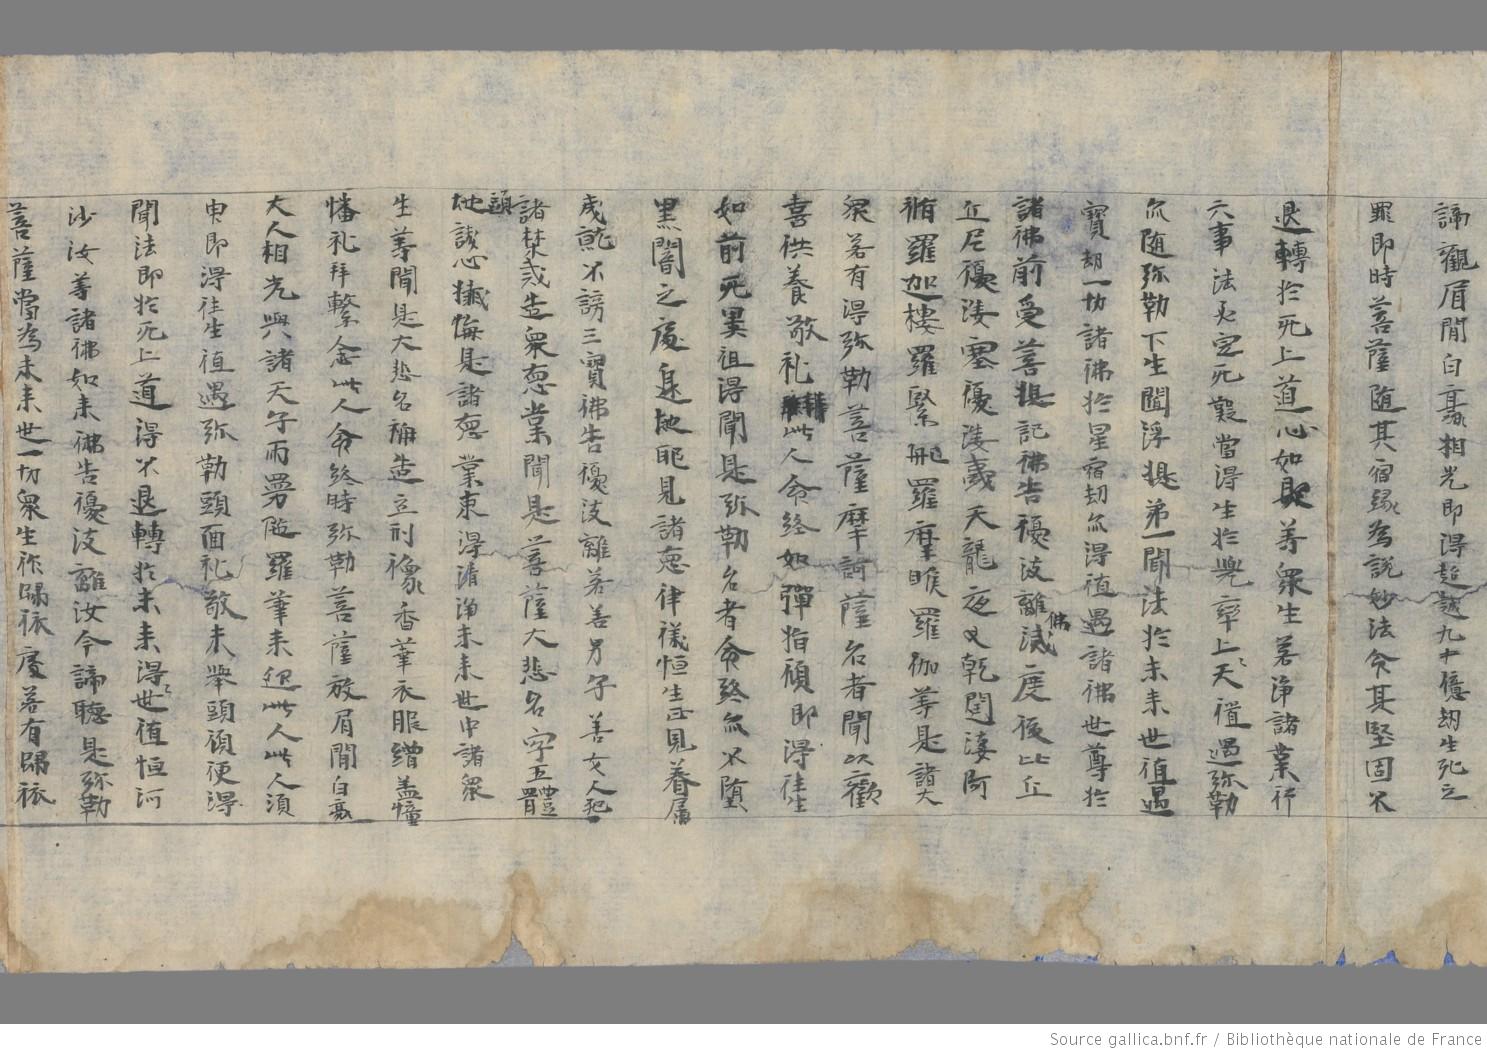 諦觀眉間白豪相光即得超越九十億劫生死之
罪即時菩薩随其宿緣為說妙法令其堅固不
退轉於无上道心如是等眾生若淨諸業行
六事法必定无疑當得生於兜率上天值遇弥勒
亦随弥勒下生閻浮提弟一聞法於未来世值遇
寶劫一切諸佛於星宿劫亦得值遇諸佛世尊於
諸佛前受菩提記佛告優波離佛滅度後比丘
丘尼優婆塞優婆夷天龍夜叉乾闼婆阿
脩羅迦樓羅緊那羅摩睺羅伽等是諸大
衆若有得弥勒菩薩摩訶薩名者聞以歡
喜供養敬礼此人命終如彈指頃即得往生
如前无異袓得聞是弥勒名者命終亦不墮
黒闇之處邊地耶見諸惡律儀恒生正見眷屬
成就不謗三寶佛告優波離若善男子善女人犯
諸禁或造衆惡業聞是菩薩大悲名字五體
頭
地誠心懺悔是諸惡業東得清淨未来世中諸衆
生等聞是大悲名稱造立刑像香華衣服繒盖幢
幡礼拜繋念此人命終時弥勒菩薩放眉間白豪
大人相光與諸天子雨曼陁羅華来迎此人此人湏
臾即得往生值遇弥勒頭面礼敬未舉頭頃便得
聞法即於无上道得不退轉於未来得世值恒河
沙汝等諸佛如来佛告優波離汝今諦聽是弥勒
菩薩當為未来世一切衆生作歸依處若有歸依
Source gallica.bnf.fr / Bibliothèque nationale de France